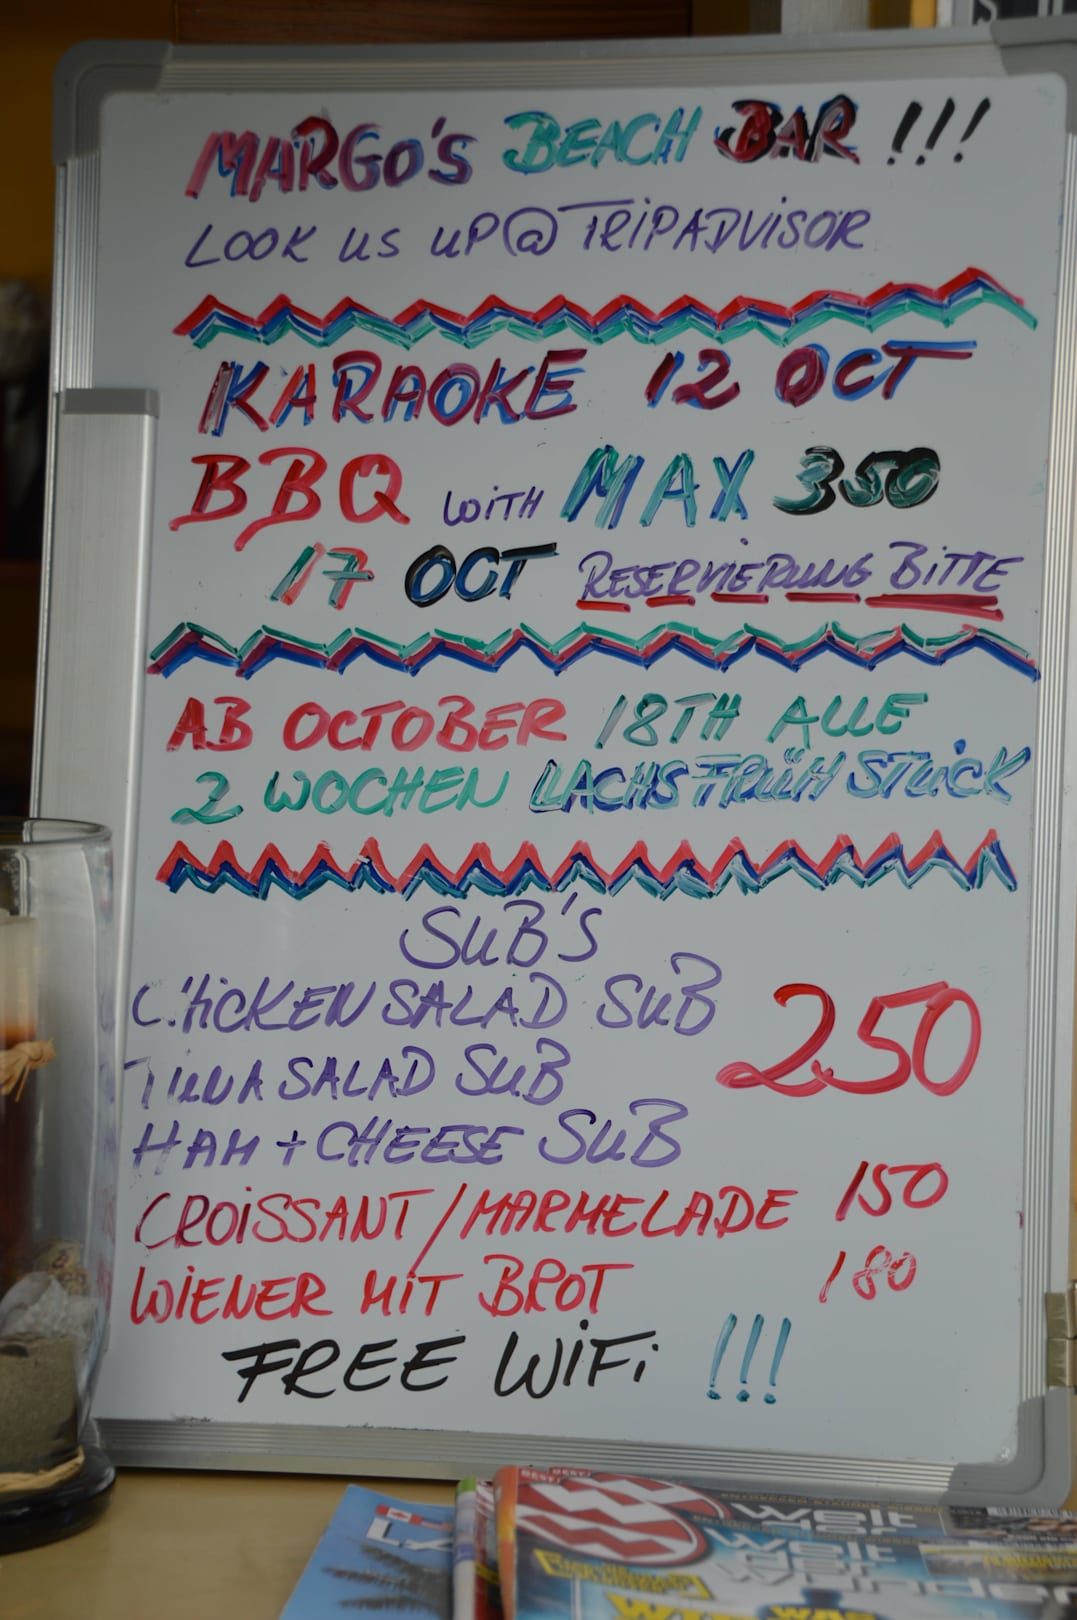 MARGO'S BEACH BAR !!!
LOOK US UP @ TRIPADVISOR
KARAOKE 12 OCT
BBQ WITH MAX 350
17 OCT RESERVIERUNG BITTE
AB OCTOBER 18TH ALLE
2 WOCHEN LACHSFRÜHSTÜCK
SUB'S
CHICKEN SALAD SUB 250
TUNA SALAD SUB
HAM + CHEESE SUB
CROISSANT/MARMELADE 150
WIENER MIT BROT 180
FREE WIFI !!!
Welt
Welt